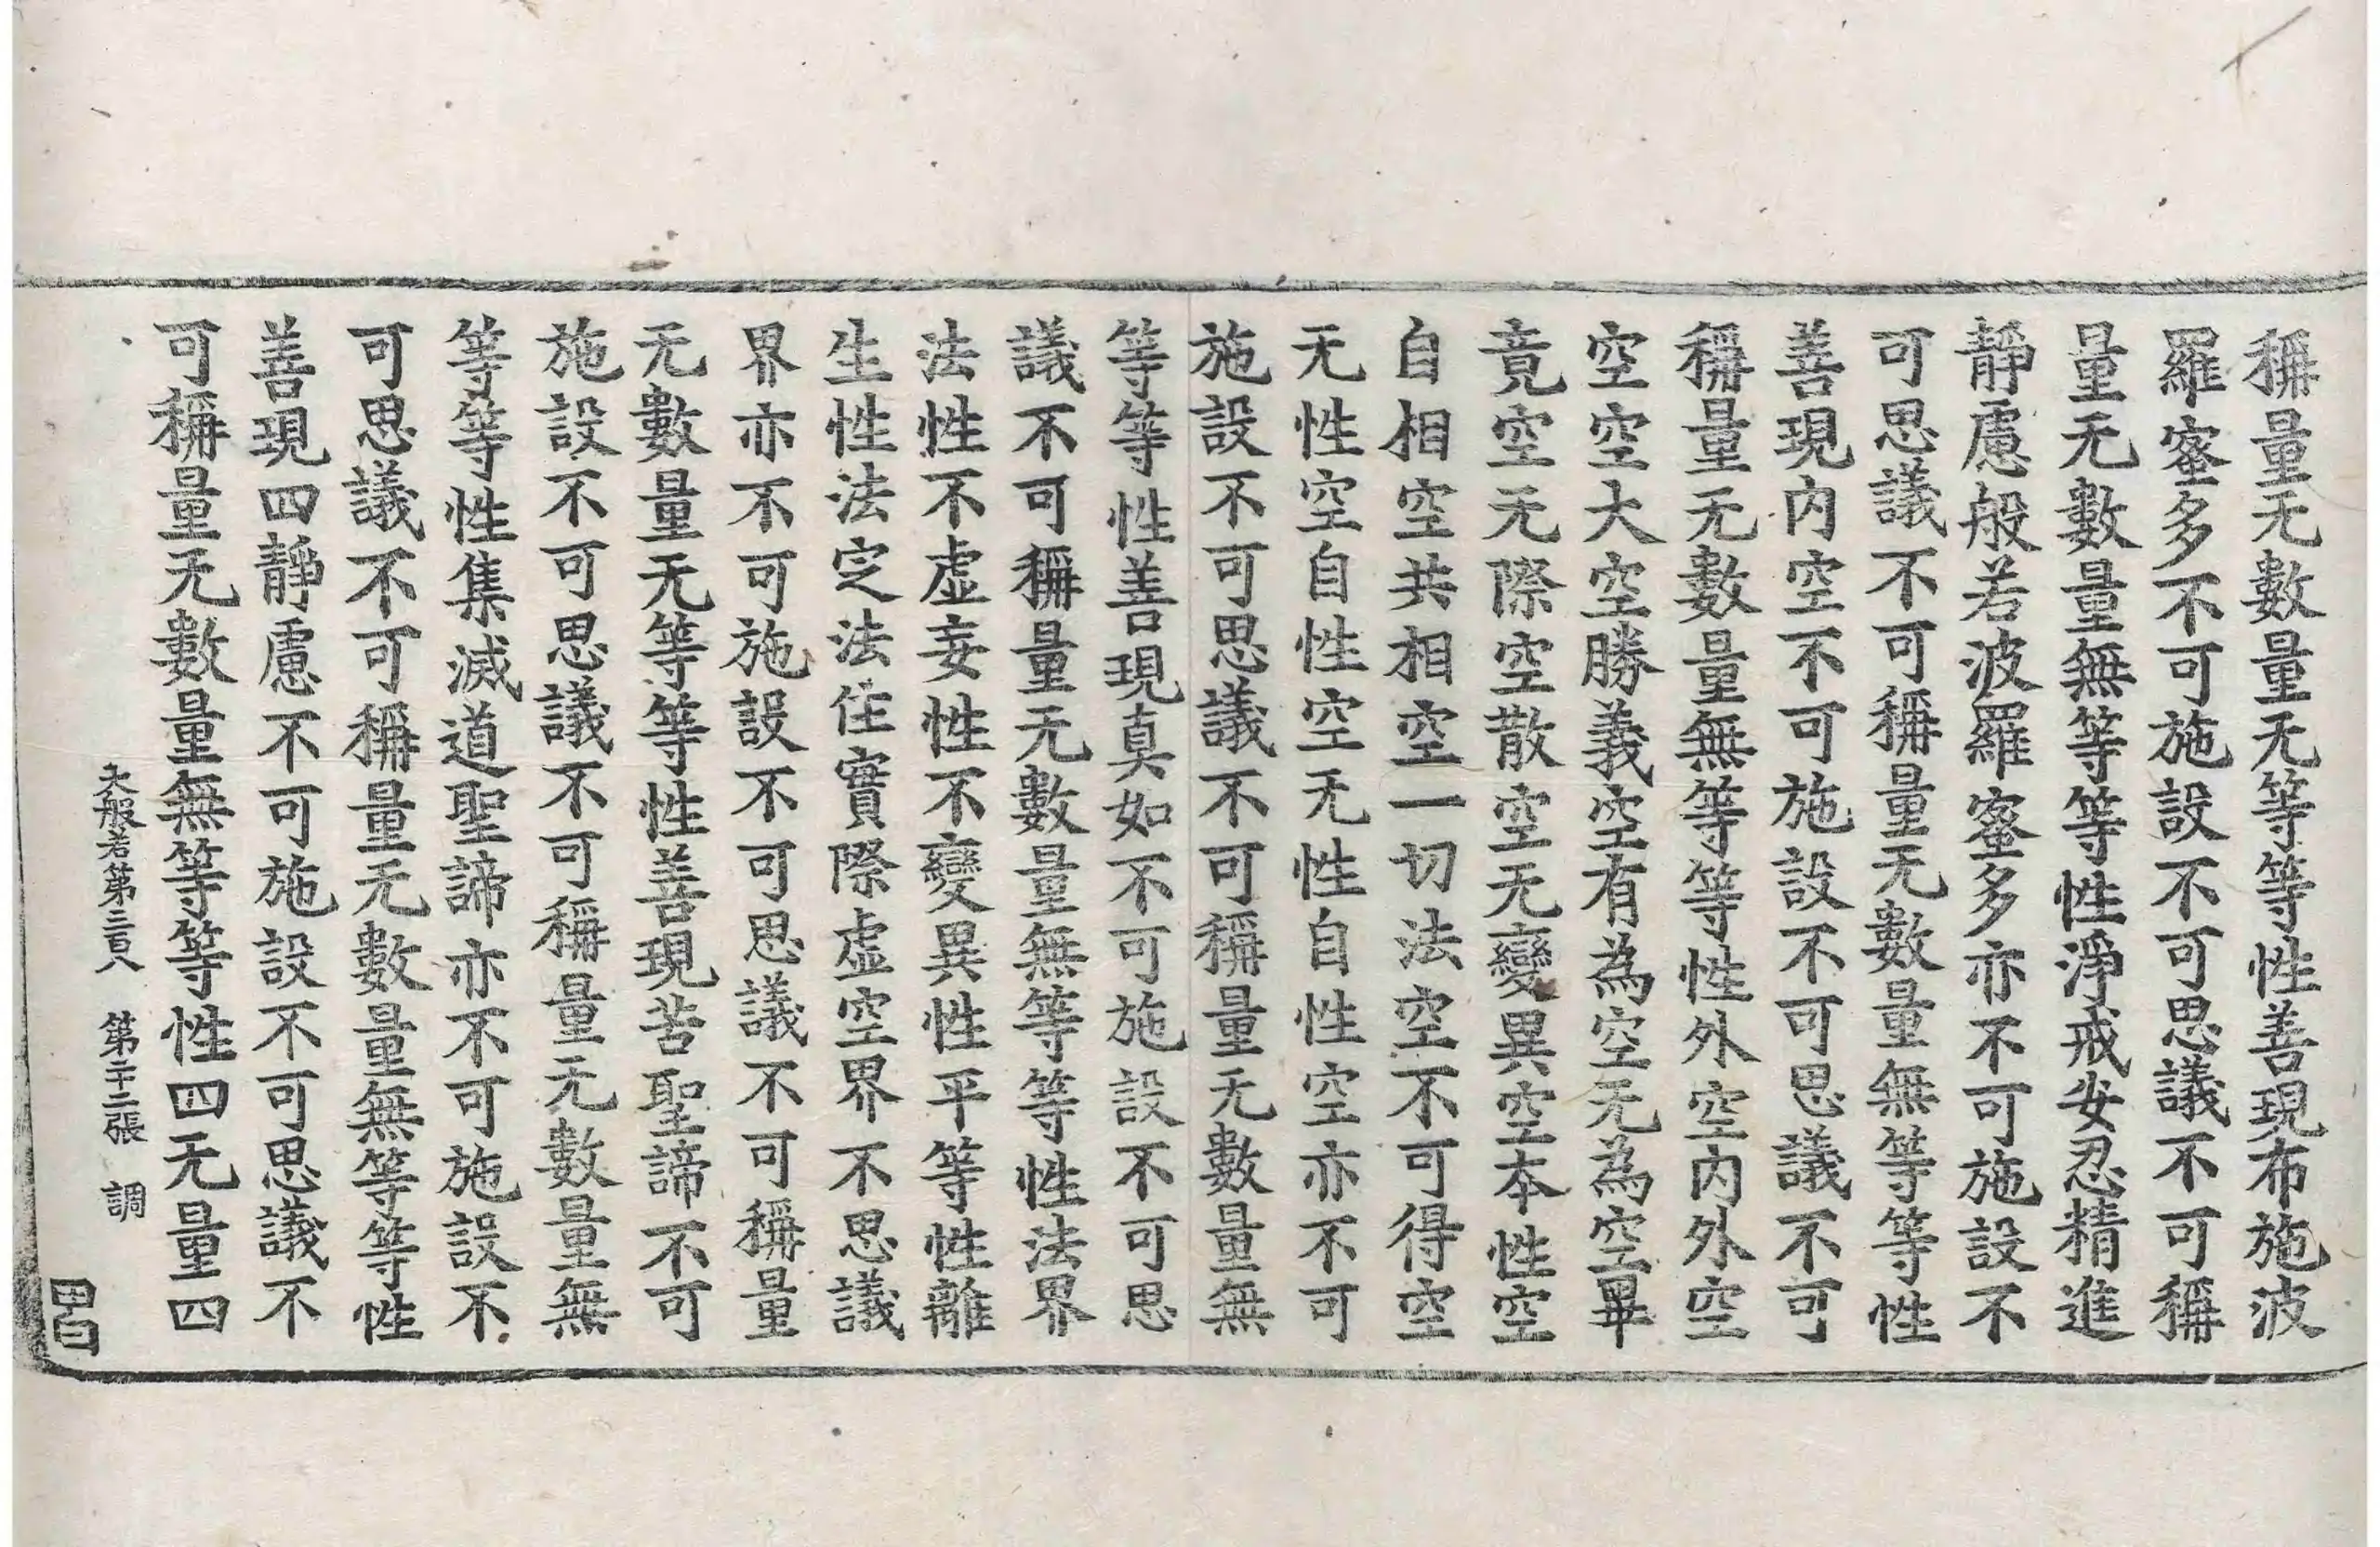 稱量无數量无等等性善現布施波
羅蜜多不可施設不可思議不可稱
量无數量無等等性淨戒安忍精進
靜慮般若波羅蜜多亦不可施設不
可思議不可稱量无數量無等等性
善現内空不可施設不可思議不可
稱量无數量無等等性外空内外空
空空大空勝義空有為空无為空畢
竟空无際空散空无變異空本性空
自相空共相空一切法空不可得空
无性空自性空无性自性空亦不可
施設不可思議不可稱量无數量無
等等性善現真如不可施設不可思
議不可稱量无數量無等等性法界
法性不虛妄性不變異性平等性離
生性法定法住實際虛空界不思議
界亦不可施設不可思議不可稱量
无數量无等等性善現苦聖諦不可
施設不可思議不可稱量无數量無
等等性集滅道聖諦亦不可施設不
可思議不可稱量无數量無等等性
善現四靜慮不可施設不可思議不
可稱量无數量無等等性四无量四
大般若第三百八 第二十二張 調